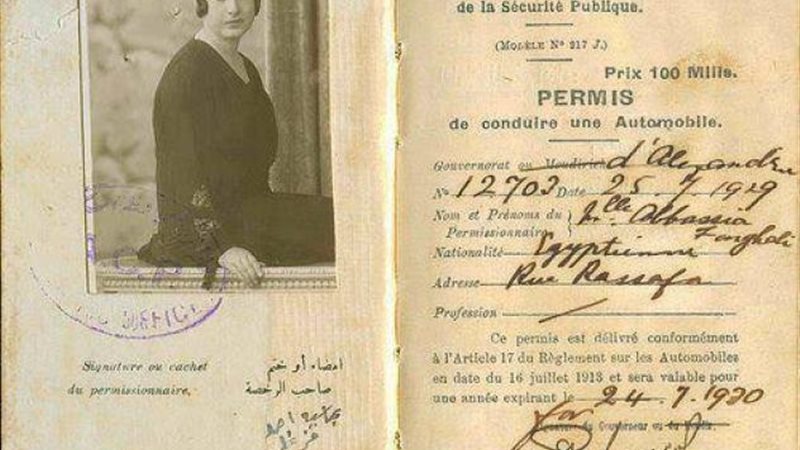 de la Sécurité Publique.
(MODÈLE Nº 217 J.)
Prix 100 Mills.
PERMIS
de conduire une Automobile.
Gouvernorat ou Moudirieh d'Alexandrie
Nº 12703 Date 25.7.1929
Nom et Prénoms du Permissionnaire } Mlle Abbassia
Farghali
Nationalité Egyptienne
Adresse Rue Rassafa
Profession
Ce permis est délivré conformément
à l'Article 17 du Règlement sur les Automobiles
en date du 16 juillet 1913 et sera valable pour
une année expirant le 24.7.1930
For
Signature du Gouverneur ou du
Signature ou cachet
du permissionnaire.
امضاء أو ختم
صاحب الرخصة